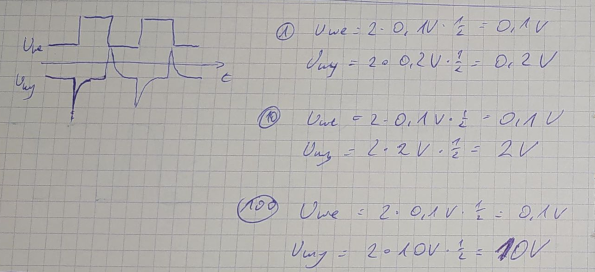 Uwe
Uwy
t
① Uwe = 2·0,1V·½ = 0,1V
Uwy = 2·0,2V·½ = 0,2V
⑩ Uwe = 2·0,1V·½ = 0,1V
Uwy = 2·2V·½ = 2V
(100) Uwe = 2·0,1V·½ = 0,1V
Uwy = 2·10V·½ = 10V